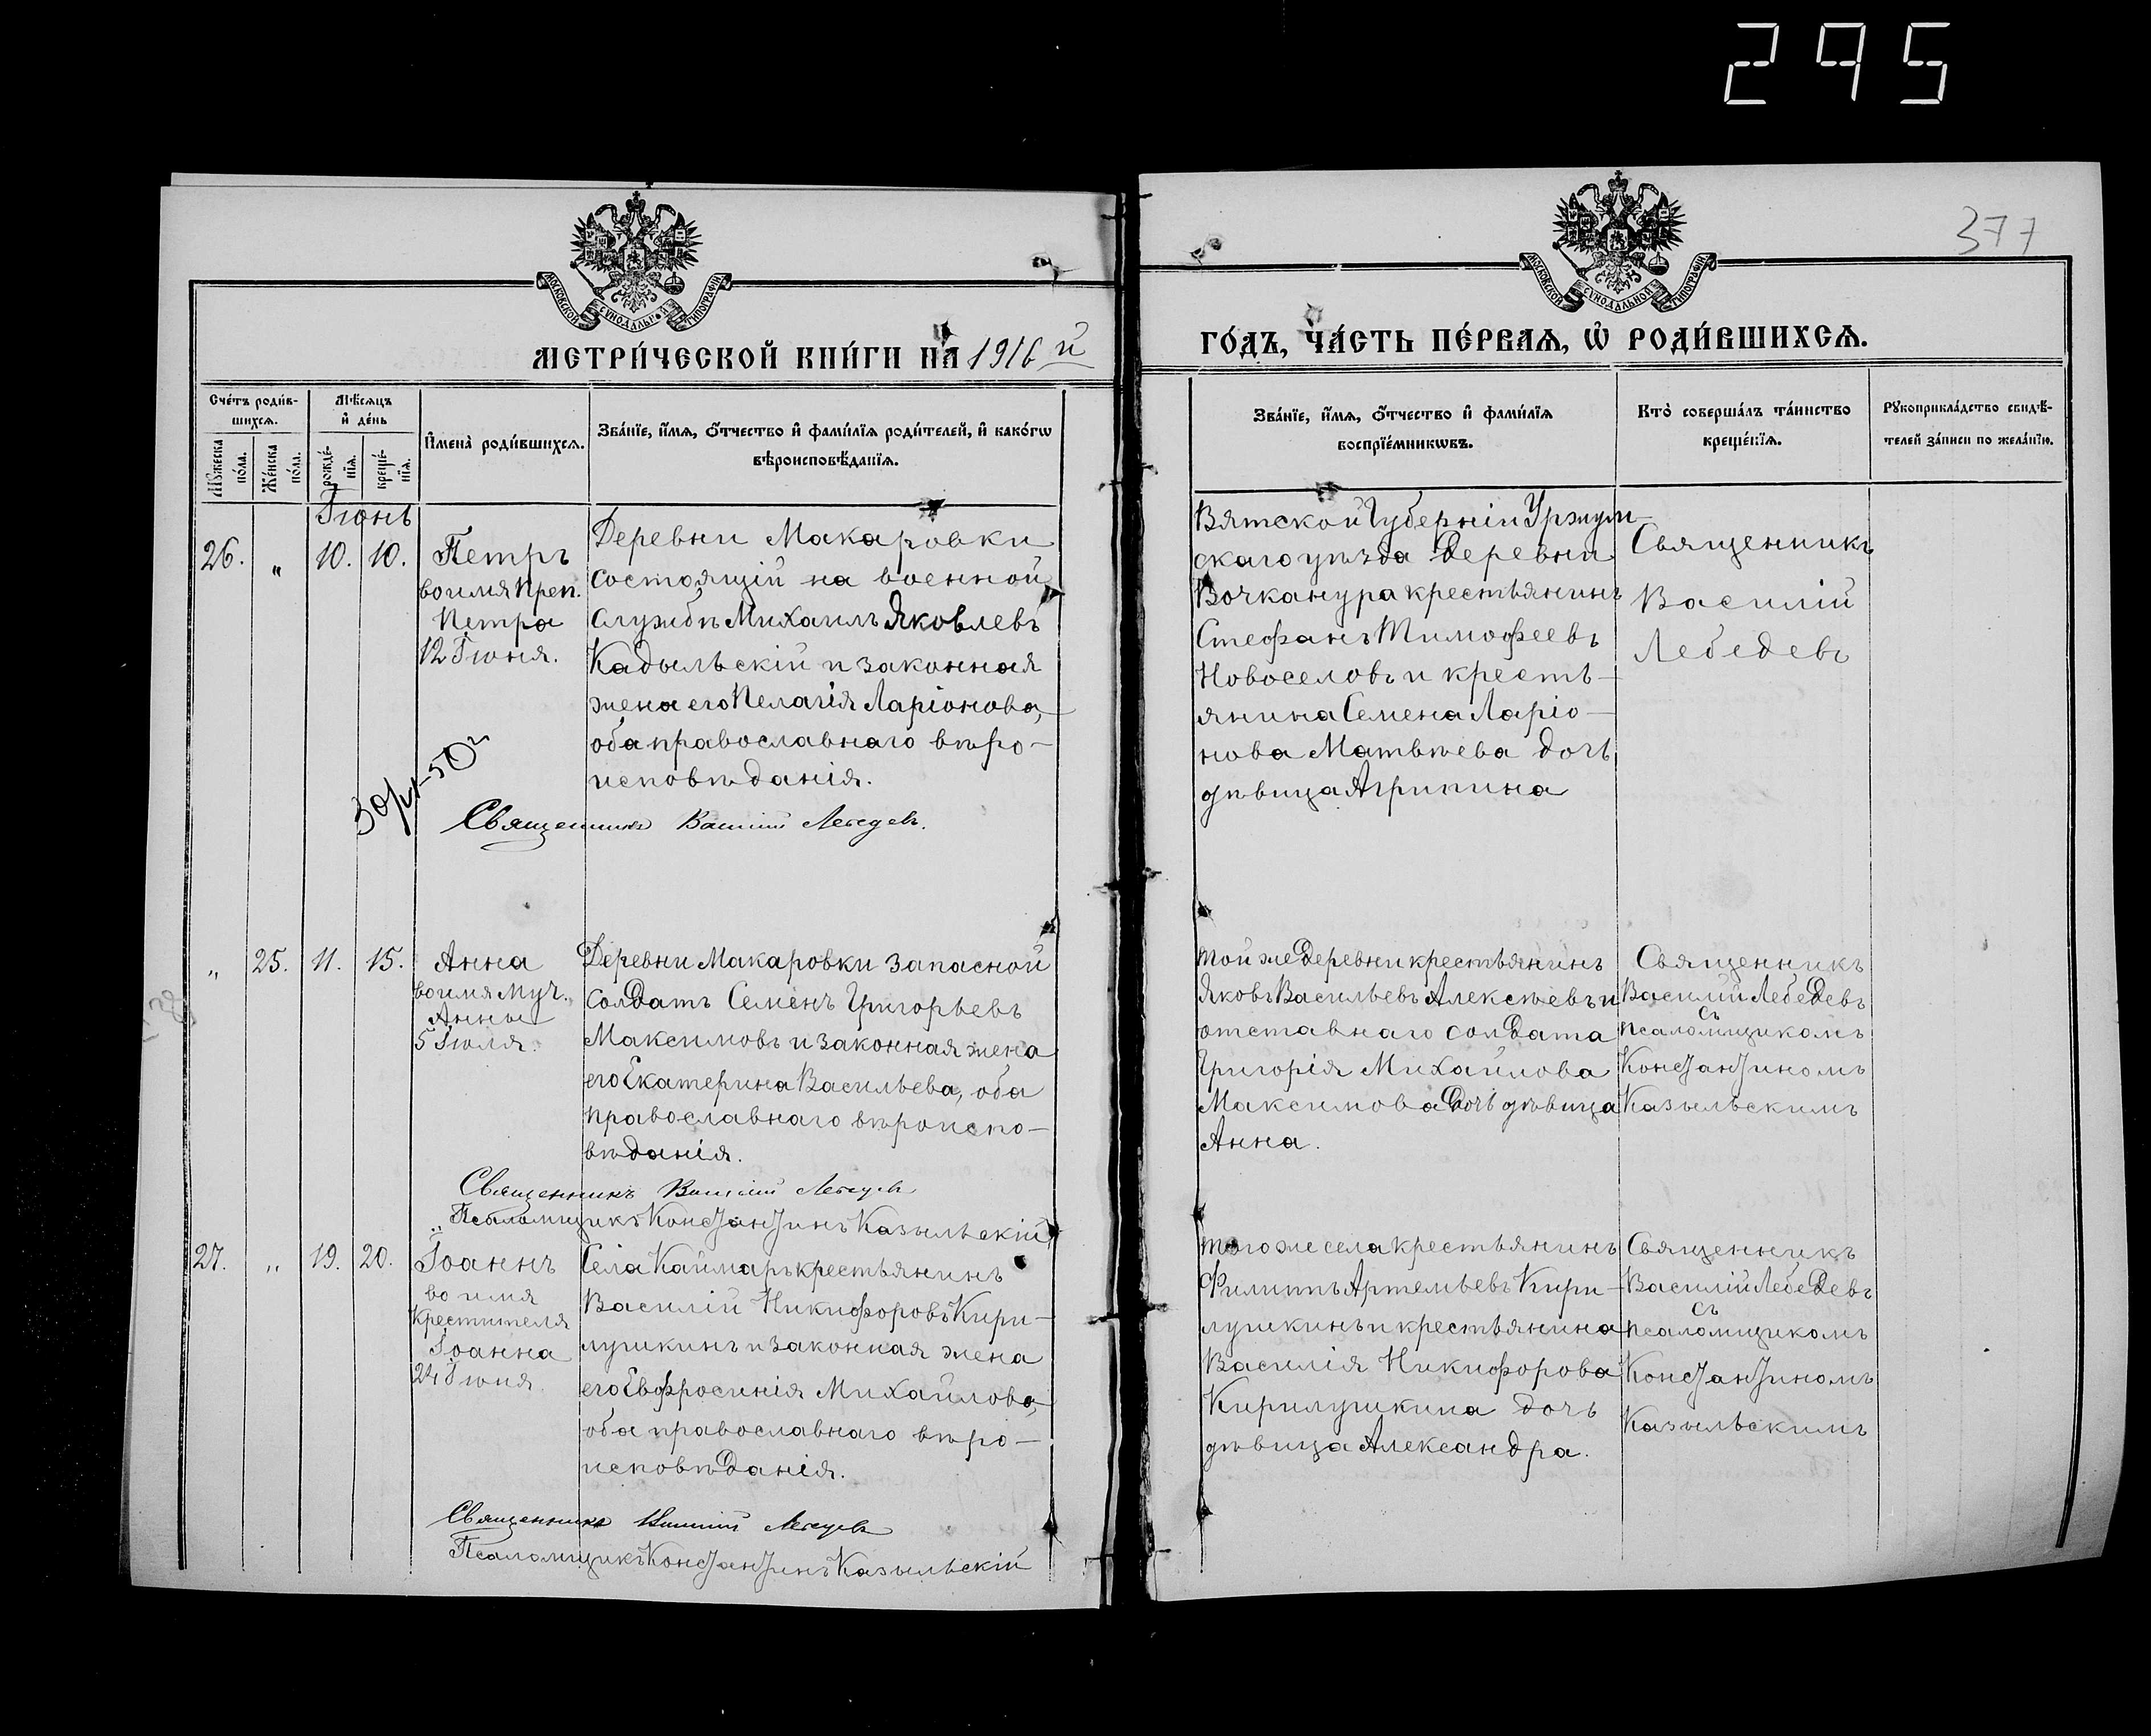 295
377
МОСКОВСКОЙ СѴНОДАЛЬНОЙ ТИПОГРАФІИ
МОСКОВСКОЙ СѴНОДАЛЬНОЙ ТИПОГРАФІИ
МЕТРИ́ЧЕСКОЙ КНИ́ГИ НА 1916 й
ГО́ДЪ, ЧА́СТЬ ПЕ́РВАѦ, Ѡ҆ РОДИ́ВШИХСѦ.
Сче́тъ роди́в-
шихсѧ.
Мꙋжеска
по́ла.
Же́нска
по́ла.
Мѣ́сѧцъ
и҆ де́нь
рожде́-
нїѧ.
креще́-
нїѧ.
И҆мена̀ роди́вшихсѧ.
Зва́нїе, и҆́мѧ, ѻ҆́тчество и҆ фами́лїѧ роди́телей, и҆ како́гѡ
вѣроисповѣ́данїѧ.
Зва́нїе, и҆́мѧ, ѻ҆́тчество и҆ фами́лїѧ
воспрїе́мникѡвъ.
Кто̀ соверша́лъ та́инство
креще́нїѧ.
Рꙋкоприкла́дство свидѣ́-
телей за́писи по жела́нїю.
Іюнь
26. „ 10. 10.
Петръ
во имя Преп.
Петра
12 Іюня.
Деревни Макаровки
состоящій на военной
службѣ Михаилъ Яковлевъ
Кадыльскій и законная
жена его Пелагія Ларіонова,
оба православнаго вѣро-
исповѣданія.
Священникъ Василій Лебедевъ.
Вятской Губерніи Уржум-
скаго уѣзда Деревни
Вочканура крестьянинъ
Стефанъ Тимофеевъ
Новоселовъ и кресть-
янина Семена Ларіо-
нова Матвѣева дочь
дѣвица Агрипина
Священникъ
Василій
Лебедевъ
„ 25. 11. 15.
Анна
во имя Муч.
Анны
5 Іюля.
Деревни Макаровки запасной
солдатъ Семенъ Григорьевъ
Максимовъ и законная жена
его Екатерина Васильева, оба
православнаго вѣроиспо-
вѣданія.
Священникъ Василій Лебедевъ
Псаломщикъ Константинъ Казыльскій
той же деревни крестьянинъ
Яковъ Васильевъ Алексѣевъ и
отставнаго солдата
Григорія Михаилова
Максимова дочь дѣвица
Анна.
Священникъ
Василій Лебедевъ
съ
псаломщикомъ
Константиномъ
Казыльскимъ
27. „ 19. 20.
Іоаннъ
во имя
Крестителя
Іоанна
24 Іюня
Села Каймаръ крестьянинъ
Василій Никифоровъ Кири-
лушкинъ и законная жена
его Евфросинія Михаилова,
оба православнаго вѣро-
исповѣданія.
Священникъ Василій Лебедевъ
Псаломщикъ Константинъ Казыльскій
того же села крестьянинъ
Филиппъ Артемьевъ Кири-
лушкинъ и крестьянина
Василія Никифорова
Кирилушкина дочь
дѣвица Александра.
Священникъ
Василій Лебедевъ
съ
псаломщикомъ
Константиномъ
Казыльскимъ